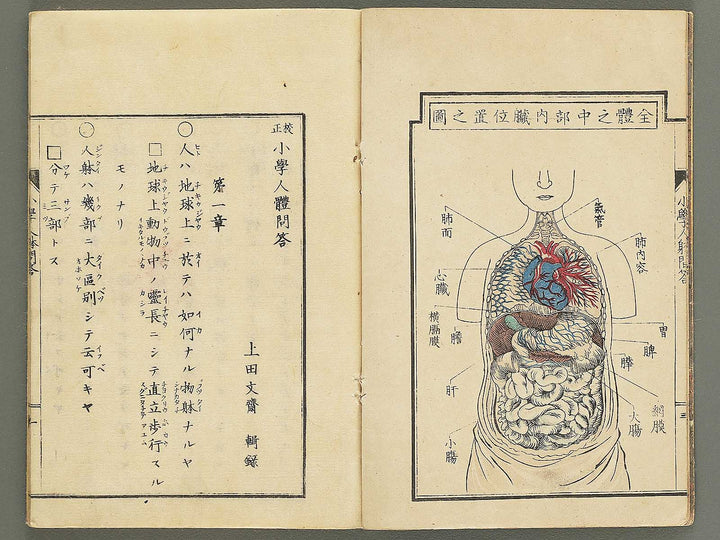 全體之中部內臓位置之圖
氣管
肺內容
胃
脾
膵
網膜
大腸
肺面
心臓
横膈膜
膽
肝
小腸
校正 小學人體問答
上田文齋 輯録
第一章
○人ハ地球上ニ於テハ如何ナル物躰ナルヤ
□地球上動物中ノ靈長ニシテ直立歩行スル
モノナリ
○人躰ハ幾部ニ大區別シテ云可キヤ
□分テ三部トス